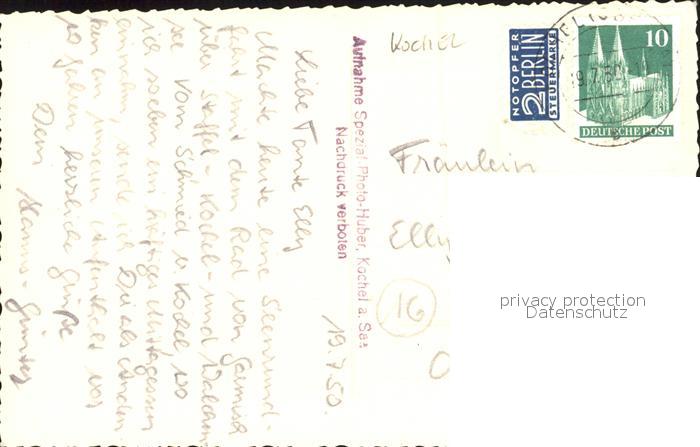 Kochel
NOTOPFER
2 BERLIN
STEUERMARKE
19.7.50
10
DEUTSCHE POST
Fräulein
Elly
16
privacy protection
Datenschutz
Aufnahme Spezial Photo-Huber, Kochel a. See
Nachdruck verboten
19.7.50.
Liebe Tante Elly
Machte heute eine Seenrund-
fahrt mit dem Rad von Garmisch
über Staffel- Kochel- und Walchen
see. Von Schmied v. Kochel, wo
ich soeben ein kräftiges Mittagessen
einnahm, sende ich Dir als Anden
ken an Aufenthalt vor
10 Jahren herzliche Grüße
Dein Hanns-Günter